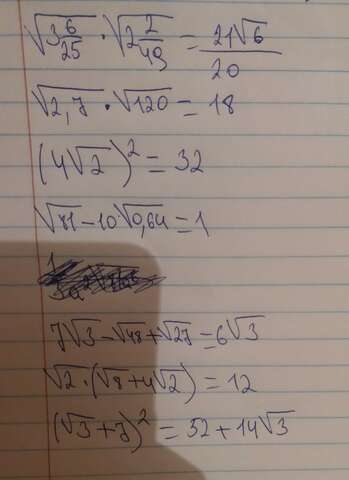 √3 6/25 · √2 2/49 = 21√6/20
√2,7 · √120 = 18
(4√2)² = 32
√81 - 10√0,64 = 1
7√3 - √48 + √27 = 6√3
√2 · (√8 + 4√2) = 12
(√3 + 7)² = 52 + 14√3